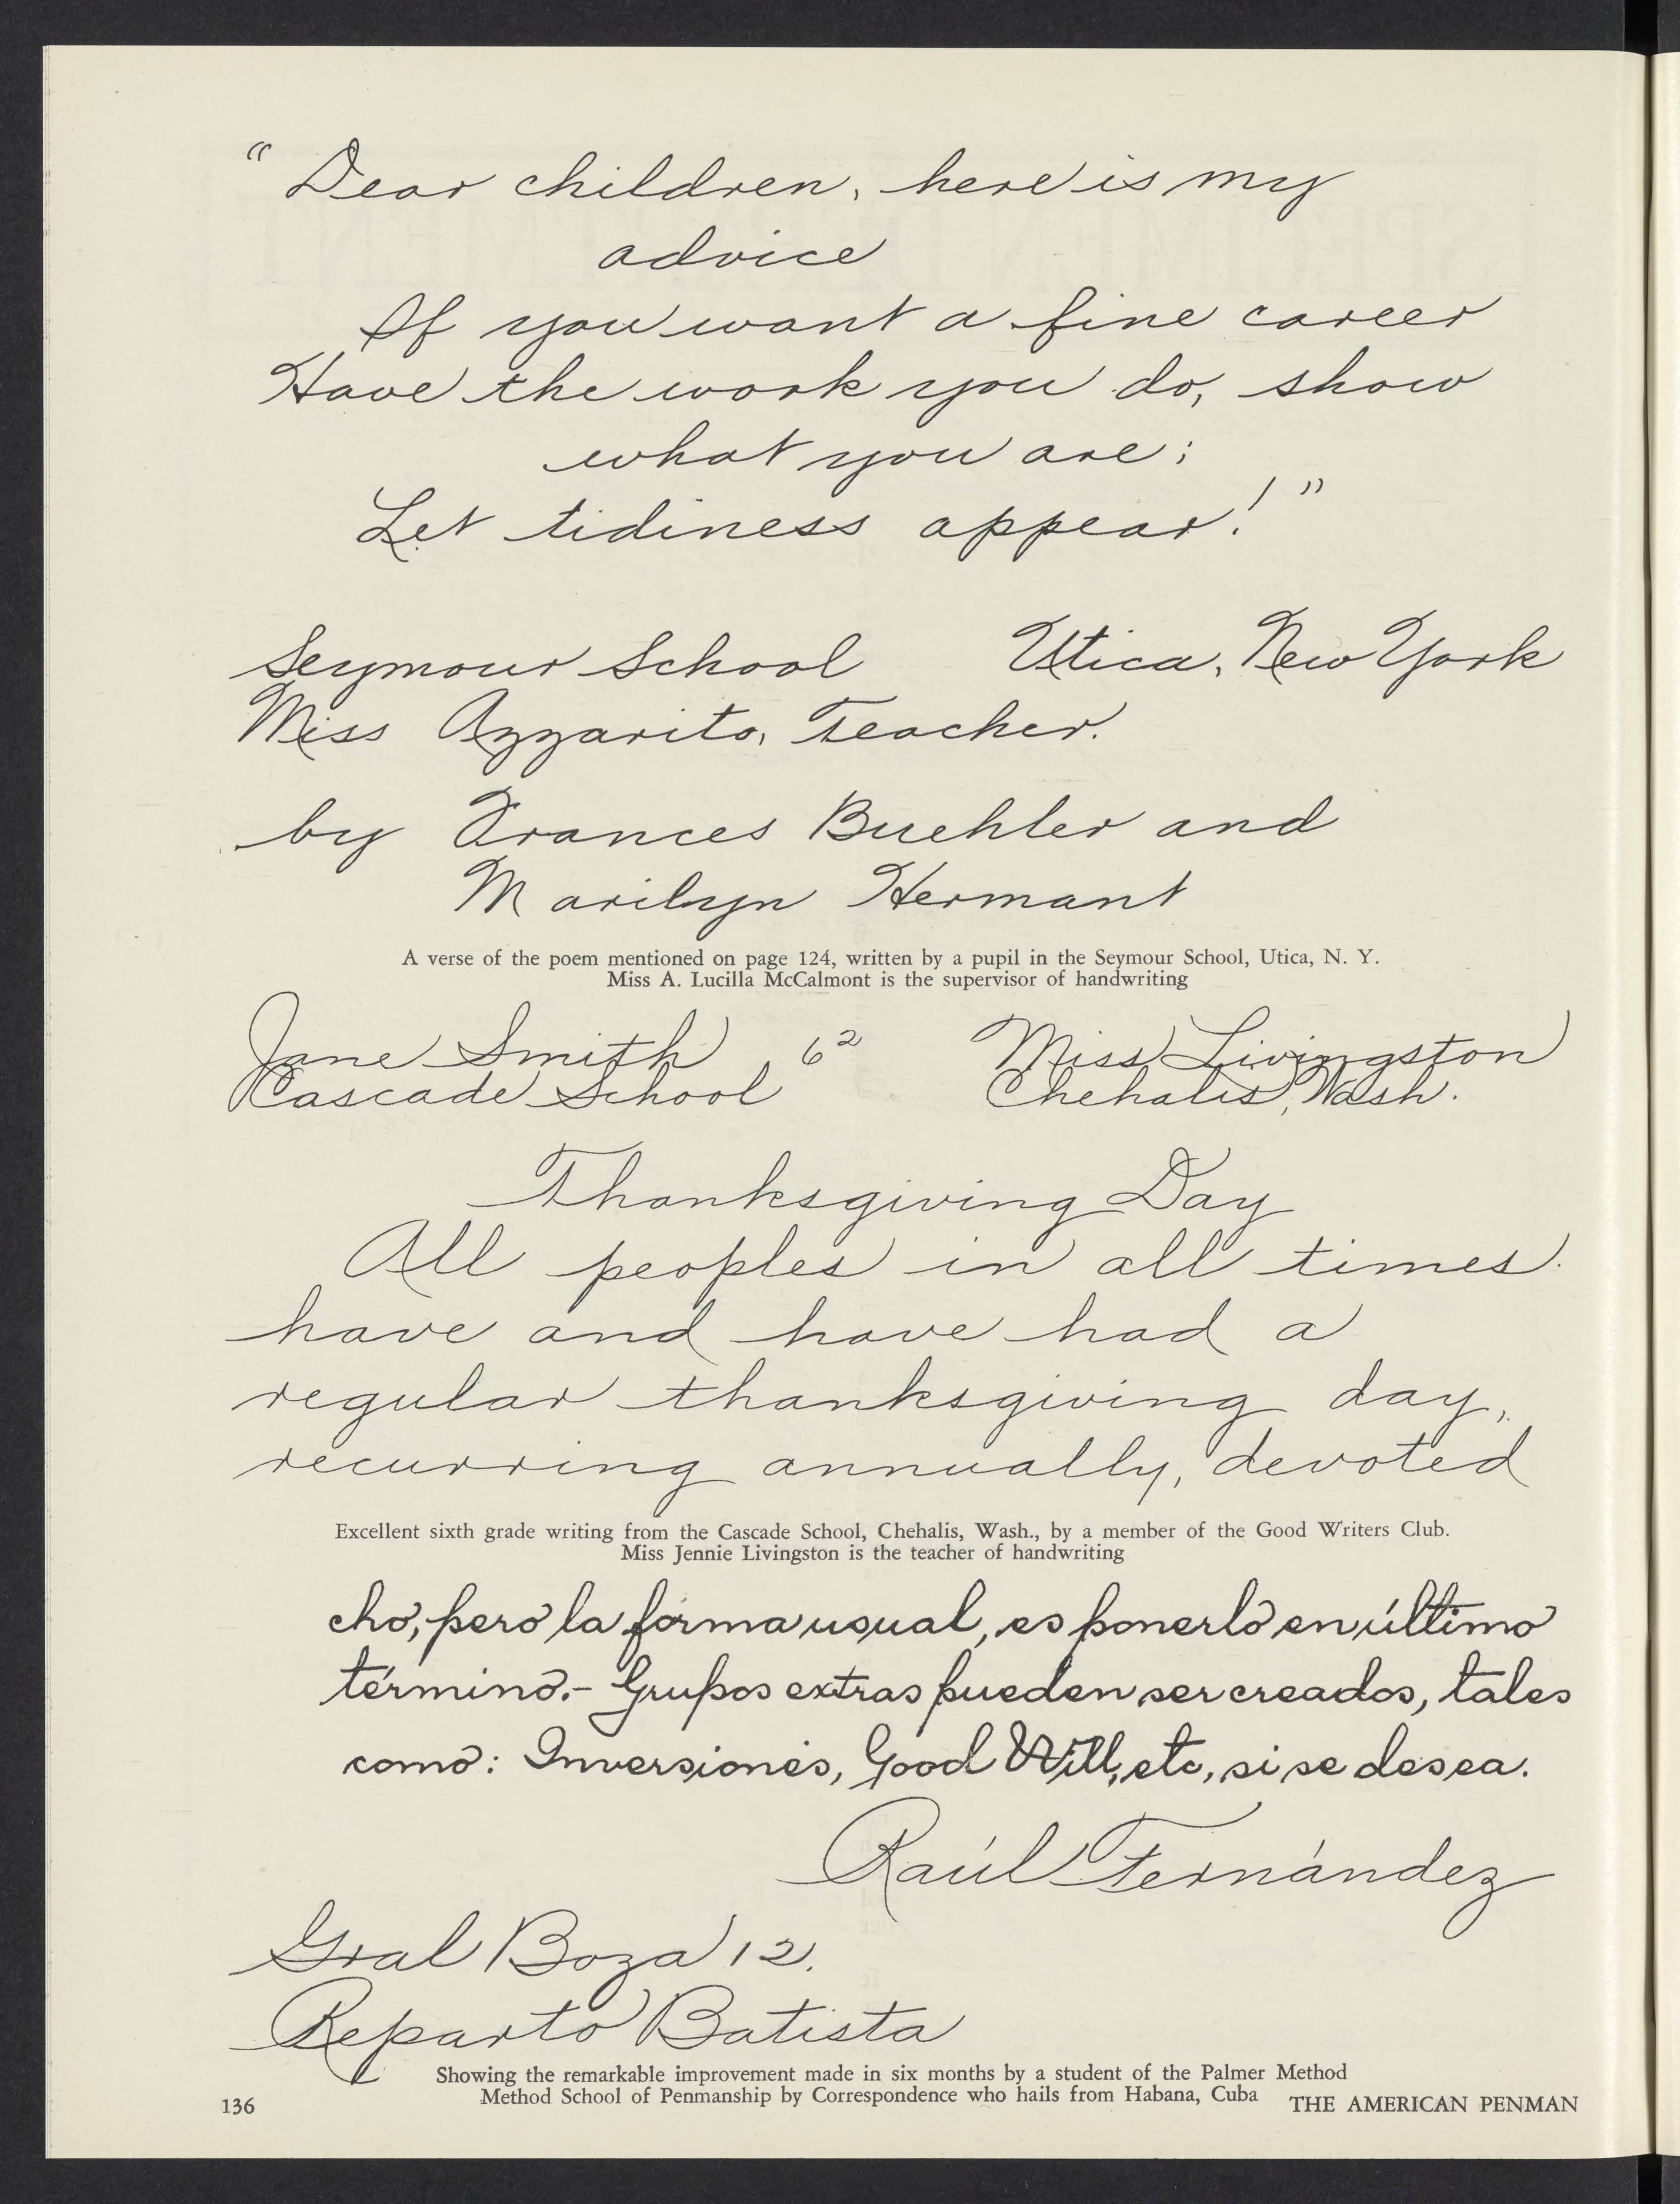 " Dear children, here is my
advice
If you want a fine career
Have the work you do, show
what you are;
Let tidiness appear! "
Seymour School Utica, New York
Miss Azzarito, Teacher.
by Frances Buehler and
Marilyn Hermant
A verse of the poem mentioned on page 124, written by a pupil in the Seymour School, Utica, N. Y.
Miss A. Lucilla McCalmont is the supervisor of handwriting
Jane Smith 6² Miss Livingston
Cascade School Chehalis, Wash.
Thanksgiving Day
All peoples in all times
have and have had a
regular thanksgiving day,
recurring annually, devoted
Excellent sixth grade writing from the Cascade School, Chehalis, Wash., by a member of the Good Writers Club.
Miss Jennie Livingston is the teacher of handwriting
cho, pero la forma usual, es ponerlo en último
término.- Grupos extras pueden ser creados, tales
como: Inversiones, Good Will, etc, si se desea.
Raúl Fernández
Gral Boza 12.
Reparto Batista
Showing the remarkable improvement made in six months by a student of the Palmer Method
Method School of Penmanship by Correspondence who hails from Habana, Cuba
136 THE AMERICAN PENMAN